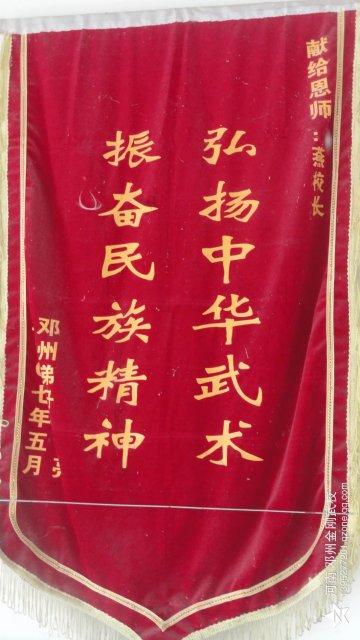 献给恩师：燕校长
弘扬中华武术
振奋民族精神
邓州
年五月
河南邓州金刚武校